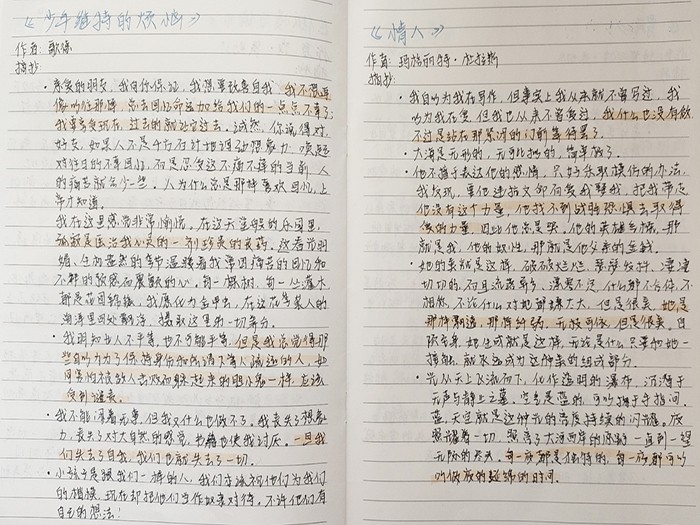 《少年维特的烦恼》
作者：歌德
摘抄：
·亲爱的朋友，我向你保证，我想要改善自我，我不想再
像以往那样，总去回忆命运加给我们的一点点不幸了，
我要享受现在，过去的就让它过去。诚然，你说得对，
好友，如果人不是
对往日的不幸回忆，而是忍受这不痛不痒的当前，人
的痛苦就会少一些，人为什么总是那样喜欢回忆，上
帝才知道。
我在这里感觉非常愉快。在这天堂般的乐园里，
孤寂是医治我心灵的一剂珍贵的良药。这春光明
媚、生机盎然的季节温暖着我常因痛苦的回忆和
不幸的敏感而震颤的心。每一棵树，每一丛灌木
都是花团锦簇，我愿化为金甲虫，在这花香袭人的
海洋里四处翻泳，摄取这里的一切养分。
·我明知出人不平等，也不可能平等，但是我总觉得那
些自以为为了保持身份和低请下等人疏远的人，如
同害怕被敌人击败而躲起来的胆小鬼一样，应该
受到谴责。
·我不能闲着无事，但我又什么也做不了。我丧失了想象
力，丧失了对大自然的感觉，书籍也使我讨厌。一旦我
们失去了自我，我们也就失去了一切。
·小孩子是跟我们一样的人，我们应该视他们为我们
的楷模，现在却把他们当作奴隶对待。不许他们有
自己的想法！
《情人》
作者：玛格丽特·杜拉斯
摘抄：
·我自以为我在写作，但事实上我从来就不曾写过，我
以为我在爱，但我也从来不曾爱过，我什么也没有做，
不过是站在那紧闭的门前等待罢了。
·大海是无形的，无可比拟的，简单极了。
·他不善于表达他的感情，只好采取模仿的办法。
我发现，要他违抗父命而爱我娶我，把我带走，
他没有这个力量，他找不到战胜恐惧去取得
爱的力量，因此他总是哭。他的英雄气概，那
就是我，他的奴性，那就是他父亲的金钱。
·她的衣服就是这样，破破烂烂，瑟瑟发抖，凄凄
切切的，而且流落异乡，潦寒不定，什么都不合体，不
相称，不论什么对她都嫌太大，但是很美，她是
那样飘逸，那样纤弱，无枝可依，但是很美。
她生成就是这样，无论是什么只要和她一
接触，就永远成为这种美的组成部分。
·光从天上飞流而下，化作透明的瀑布，沉潜于
无声与静止之墓。空气是蓝的，可以掬于手指间。
蓝。天空就是这种光的亮度持续的闪耀。夜
照耀着一切，照亮了大河两岸的原野一直到一望
无际的尽头。每一夜都是独特的，每一夜都可以
叫做夜的延绵的时间。